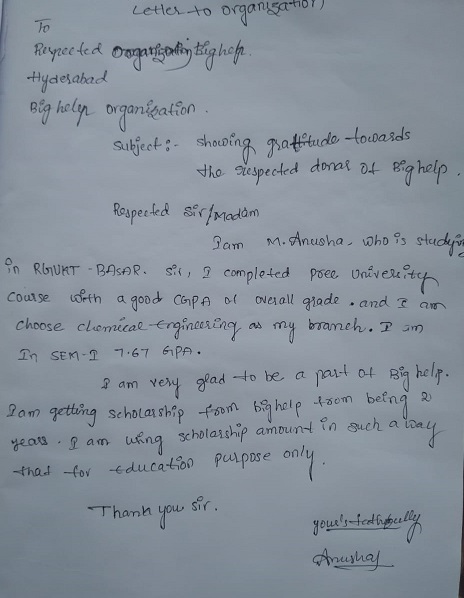 Letter to organisation
To
Respected Organisation Bighelp.
Hyderabad
Big help organisation.
Subject:- showing grattitude towards
the respected donar of Big help.
Respected Sir/Madam
I am M. Anusha, who is studying
in RGUKT - BASAR. Sir, I completed pree University
Course with a good CGPA of overall grade. and I am
choose chemical Engineering as my branch. I am
In SEM-I 7.67 GPA.
I am very glad to be a part of Big help.
I am getting scholarship from bighelp from being 2
years. I am using scholarship amount in such a way
that for education purpose only.
Thank you sir.
your's
Anusha